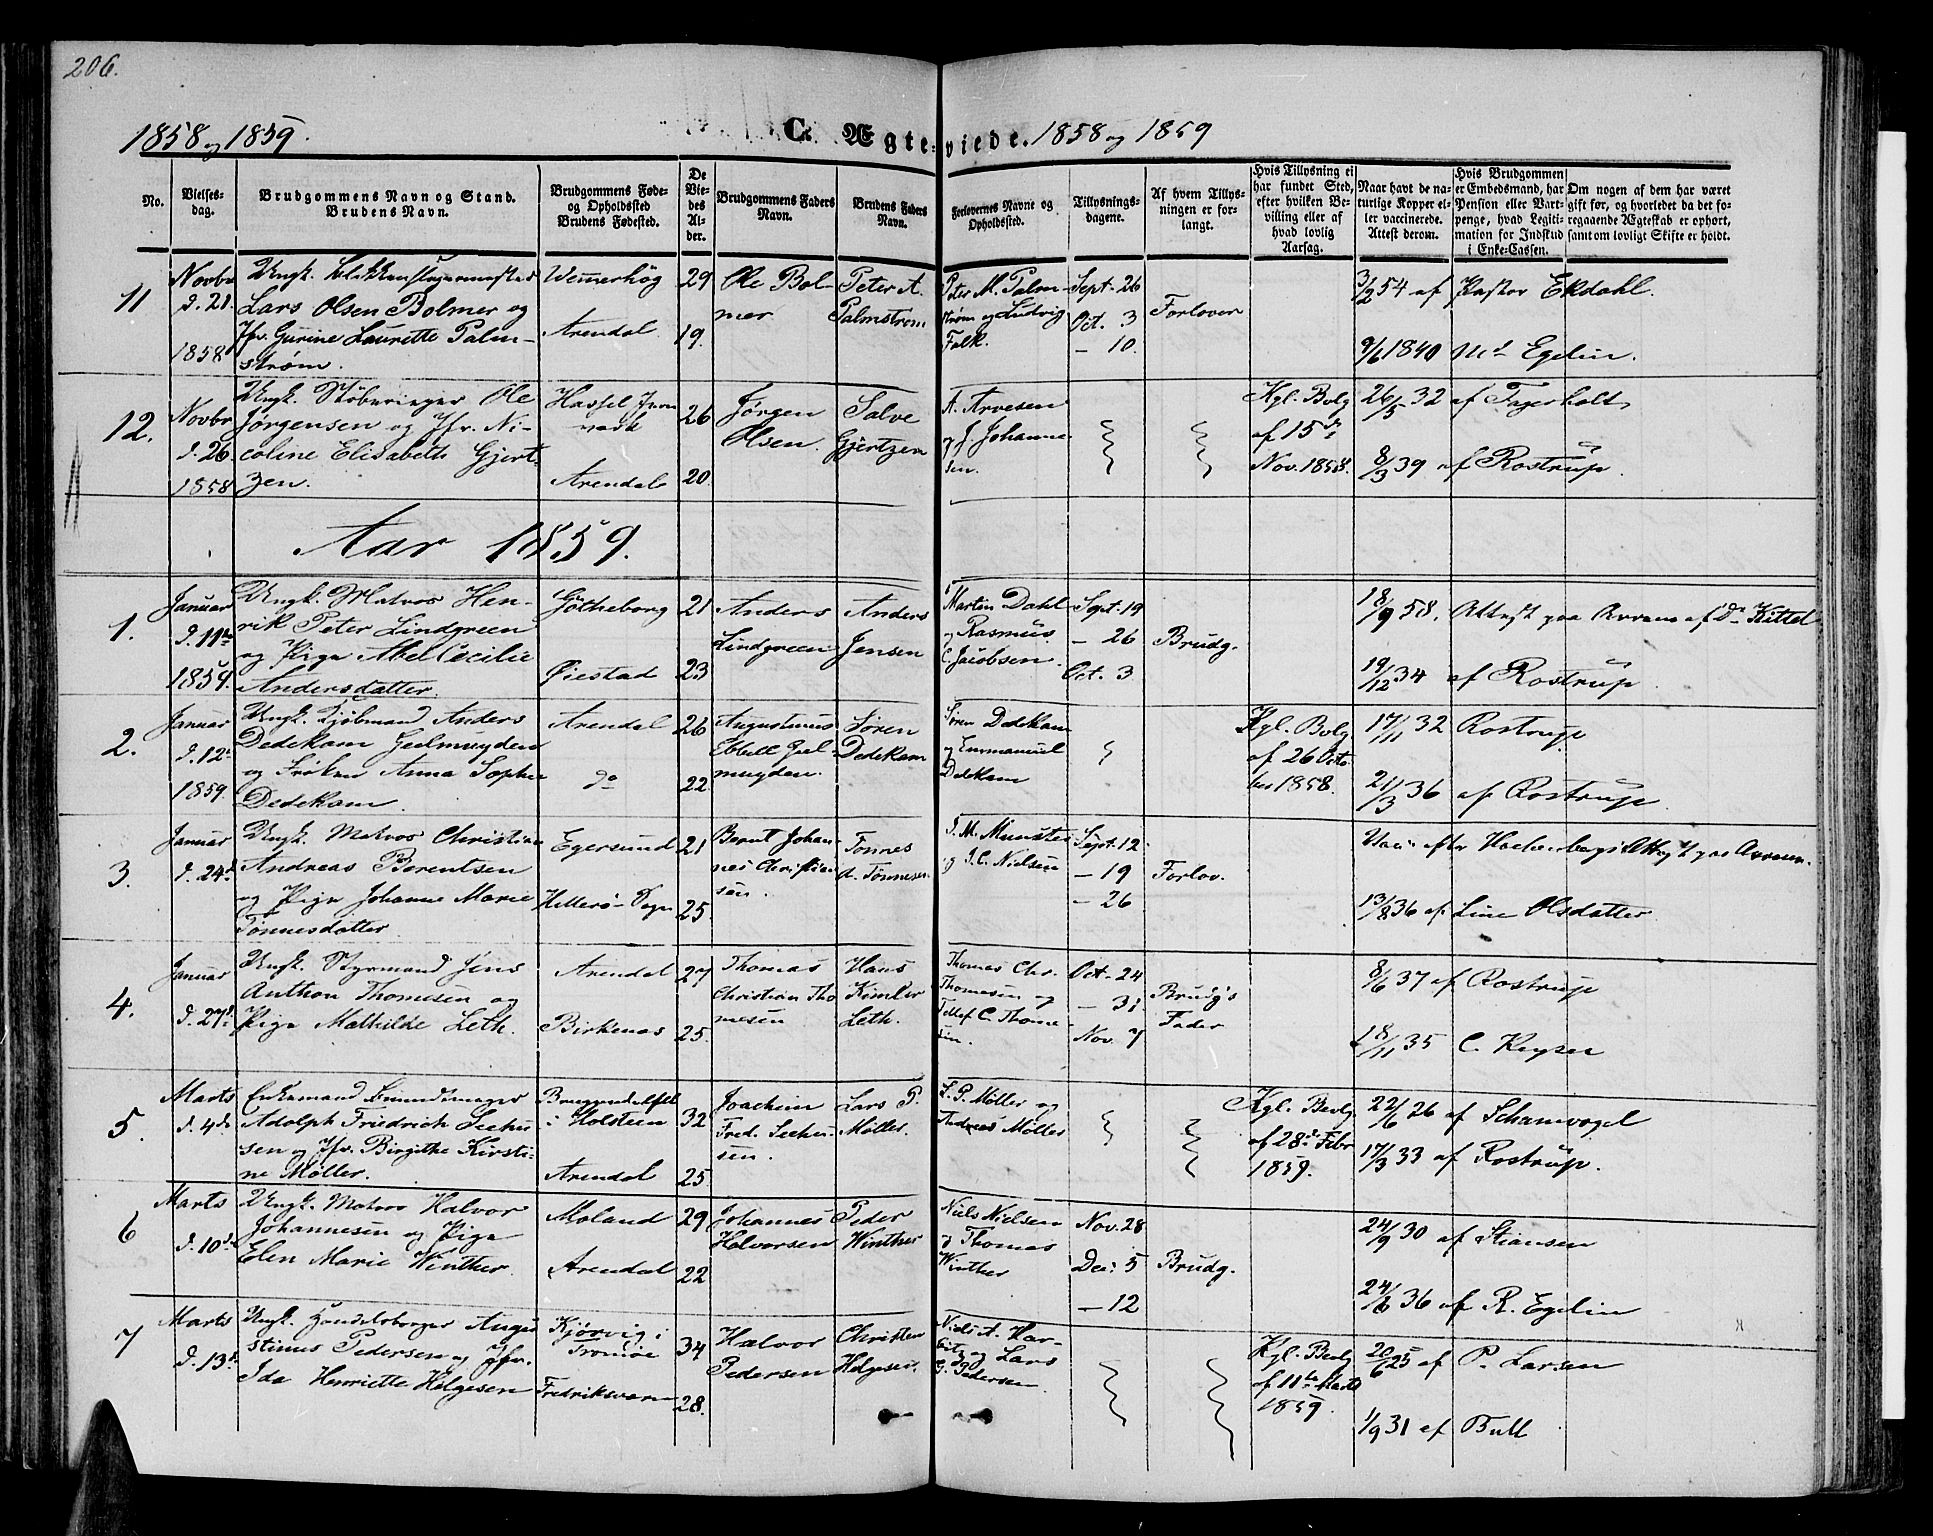 206.
1858 og 1859.
C. Ægteviede. 1858 og 1859
No.
Vielsesdag.
Brudgommens Navn og Stand.
Brudens Navn.
Brudgommens Føde-
og Opholdssted
Brudens Fødested.
De
Vie-
des
Al-
der.
Brudgommens Faders
Navn.
Brudens Faders
Navn.
Forlovernes Navne og
Opholdssted.
Tillysnings-
dagene.
Af hvem Tillys-
ningen er for-
langt.
Hvis Tillysning ei
har fundet Sted,
efter hvilken Be-
villing eller af
hvad lovlig
Aarsag.
Naar havt de na-
turlige Kopper el-
ler vaccinerede.
Attest derom.
Hvis Brudgommen
er Embedsmand, har
Pension eller Vart-
penge, hvad Legiti-
mation for Indskud
i Enke-Cassen.
Om nogen af dem har været
gift før, og hvorledet da det fo-
regaaende Ægteskab er ophørt,
samt om lovligt Skifte er holdt.
11
Novbr
d. 21.
1858
Ungk.
Lars Olsen Bolmer og
Jfr. Gurine Laurette Palm-
strøm.
Wennerhög
Arendal
29
19.
Ole Bol-
mer
Peter A.
Palmstrøm
Peter M. Palm-
strøm og Ludvig
Falk.
Sept. 26
Oct. 3
— 10.
Forlover
3/2 54 af Pastor Ekdahl.
9/6 1840 Md Egelin.
12.
Novbr
d. 26
1858
Ungk. Støbersvger Ole
Jørgensen og Jfr. Ni-
coline Elisabeth Gjert-
zen.
Hassel Jern
værk
Arendal
26
20.
Jørgen
Olsen.
Salve
Gjertzen
A. Arvesen
og J. Johanne-
sen.
Kgl. Bvlg
af 15de
Nov. 1858.
26/5 32 af Fagerholt
8/3 39 af Rostrup.
Aar 1859.
1.
Januar
d. 11te
1859.
Ungk. Matros Hen-
rik Peter Lindgreen
og Pige Abel Cecilie
Andersdatter.
Götheborg
Øiestad
21
23
Anders
Lindgreen
Anders
Jensen
Martin Dahl
og Rasmus
C. Jacobsen.
Sept. 19
— 26
Oct. 3
Brudg.
18/9 58. Attest paa Arrene af Dr Kittel
19/12 34 af Rostrup.
2.
Januar
d. 12te
1859.
Ungk. Kjøbmand Anders
Dedekam Geelmuyden
og Frøken Anna Sophie
Dedekam.
Arendal
do
26
22
Augustinus
Ebbell Geel-
muyden.
Søren
Dedekam
Søren Dedekam
og Emmanuel
Dedekam
Kgl. Bvlg
af 26 Octo-
ber 1858.
17/11 32 Rostrup
21/3 36 af Rostrup.
3.
Januar
d. 24de
Ungk. Matros Christian
Andreas Berentsen
og Pige Johanne Marie
Tønnesdatter
Egersund
Hitterø Sogn
21
25
Bernt Johan-
nes Christian-
sen.
Tønnes
A. Tønnesen
T. M. Munster
og J. C. Nielsen
Sept. 12
— 19
— 26
Forlov.
Attest paa Arrene.
13/8 36 af Line Olsdatter
4.
Januar
d. 27de
Ungk. Styrmand Jens
Anthon Thomesen og
Pige Mathilde Leth.
Arendal
Birkenæs
27
25.
Thomas
Christian Tho-
mesen
Hans
Kimler
Leth.
Thomas Chr.
Thomesen og
Tellef C. Thome-
sen.
Oct. 24
— 31
Nov. 7
Brudg's
Fader
8/6 37 af Rostrup
18/11 35 C. Keyser
5.
Marts
d. 4de
Enkemand Bundtmager
Adolph Friedrich Seehu-
sen og Jfr. Birgithe Kirsti-
ne Møller.
i Holsteen
Arendal
32
25
Joachim
Fred. Seehu-
sen.
Lars P.
Møller.
L. P. Møller og
Andreas Møller
Kgl. Bevlg
af 28de Febr
1859.
22/6 26 af Schamvogel
17/3 33 af Rostrup.
6
Marts
d. 10de
Ungk. Matros Halvor
Johannesen og Pige
Elen Marie Winther.
Moland
Arendal
29
22
Johannes
Halvorsen
Peder
Winther
Niels Nielsen
og Thomas
Winther
Nov. 28
Dec. 5
— 12
Brudg.
24/9 30 af Stiansen
24/6 36 af R. Egelin
7
Marts
d. 13de
Ungk. Handelsborger Augu-
stinus Pedersen og Jfr.
Ida Henriette Helgesen
Kjørvig i
Tromøe
Fredriksværn
34
28.
Halvor
Pedersen
Christen
Helgesen.
Niels A. Har-
bitz og Lars
G. Pedersen.
Kgl. Bevlg
af 11te Marts
1859
20/6 25 af P. Larsen
1/9 31 af Bull